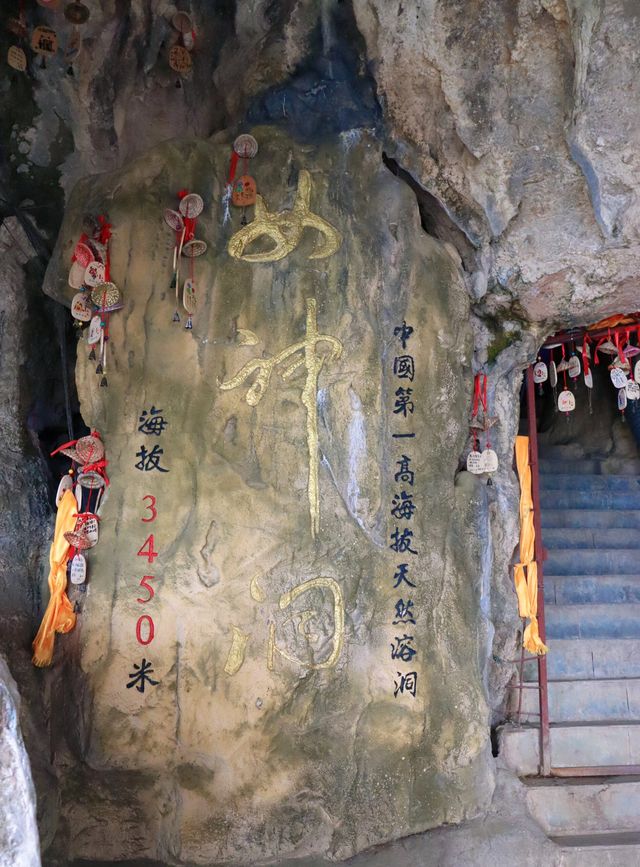 中國第一高海拔天然溶洞
女神洞
海拔 3450 米